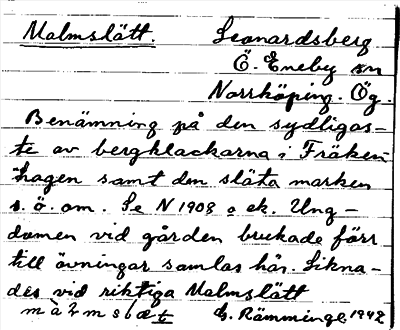 Malmslätt. Leonardsberg
Ö. Eneby sn
Norrköping. Ög.
Benämning på den sydligas-
te av bergklackarna i Fräken-
hagen samt den släta marken
s. ö. om. Se N 1908 o ek. Ung-
domen vid gården brukade förr
till övningar samlas här. Likna-
des vid riktiga Malmslätt
G. Rämminge 1942